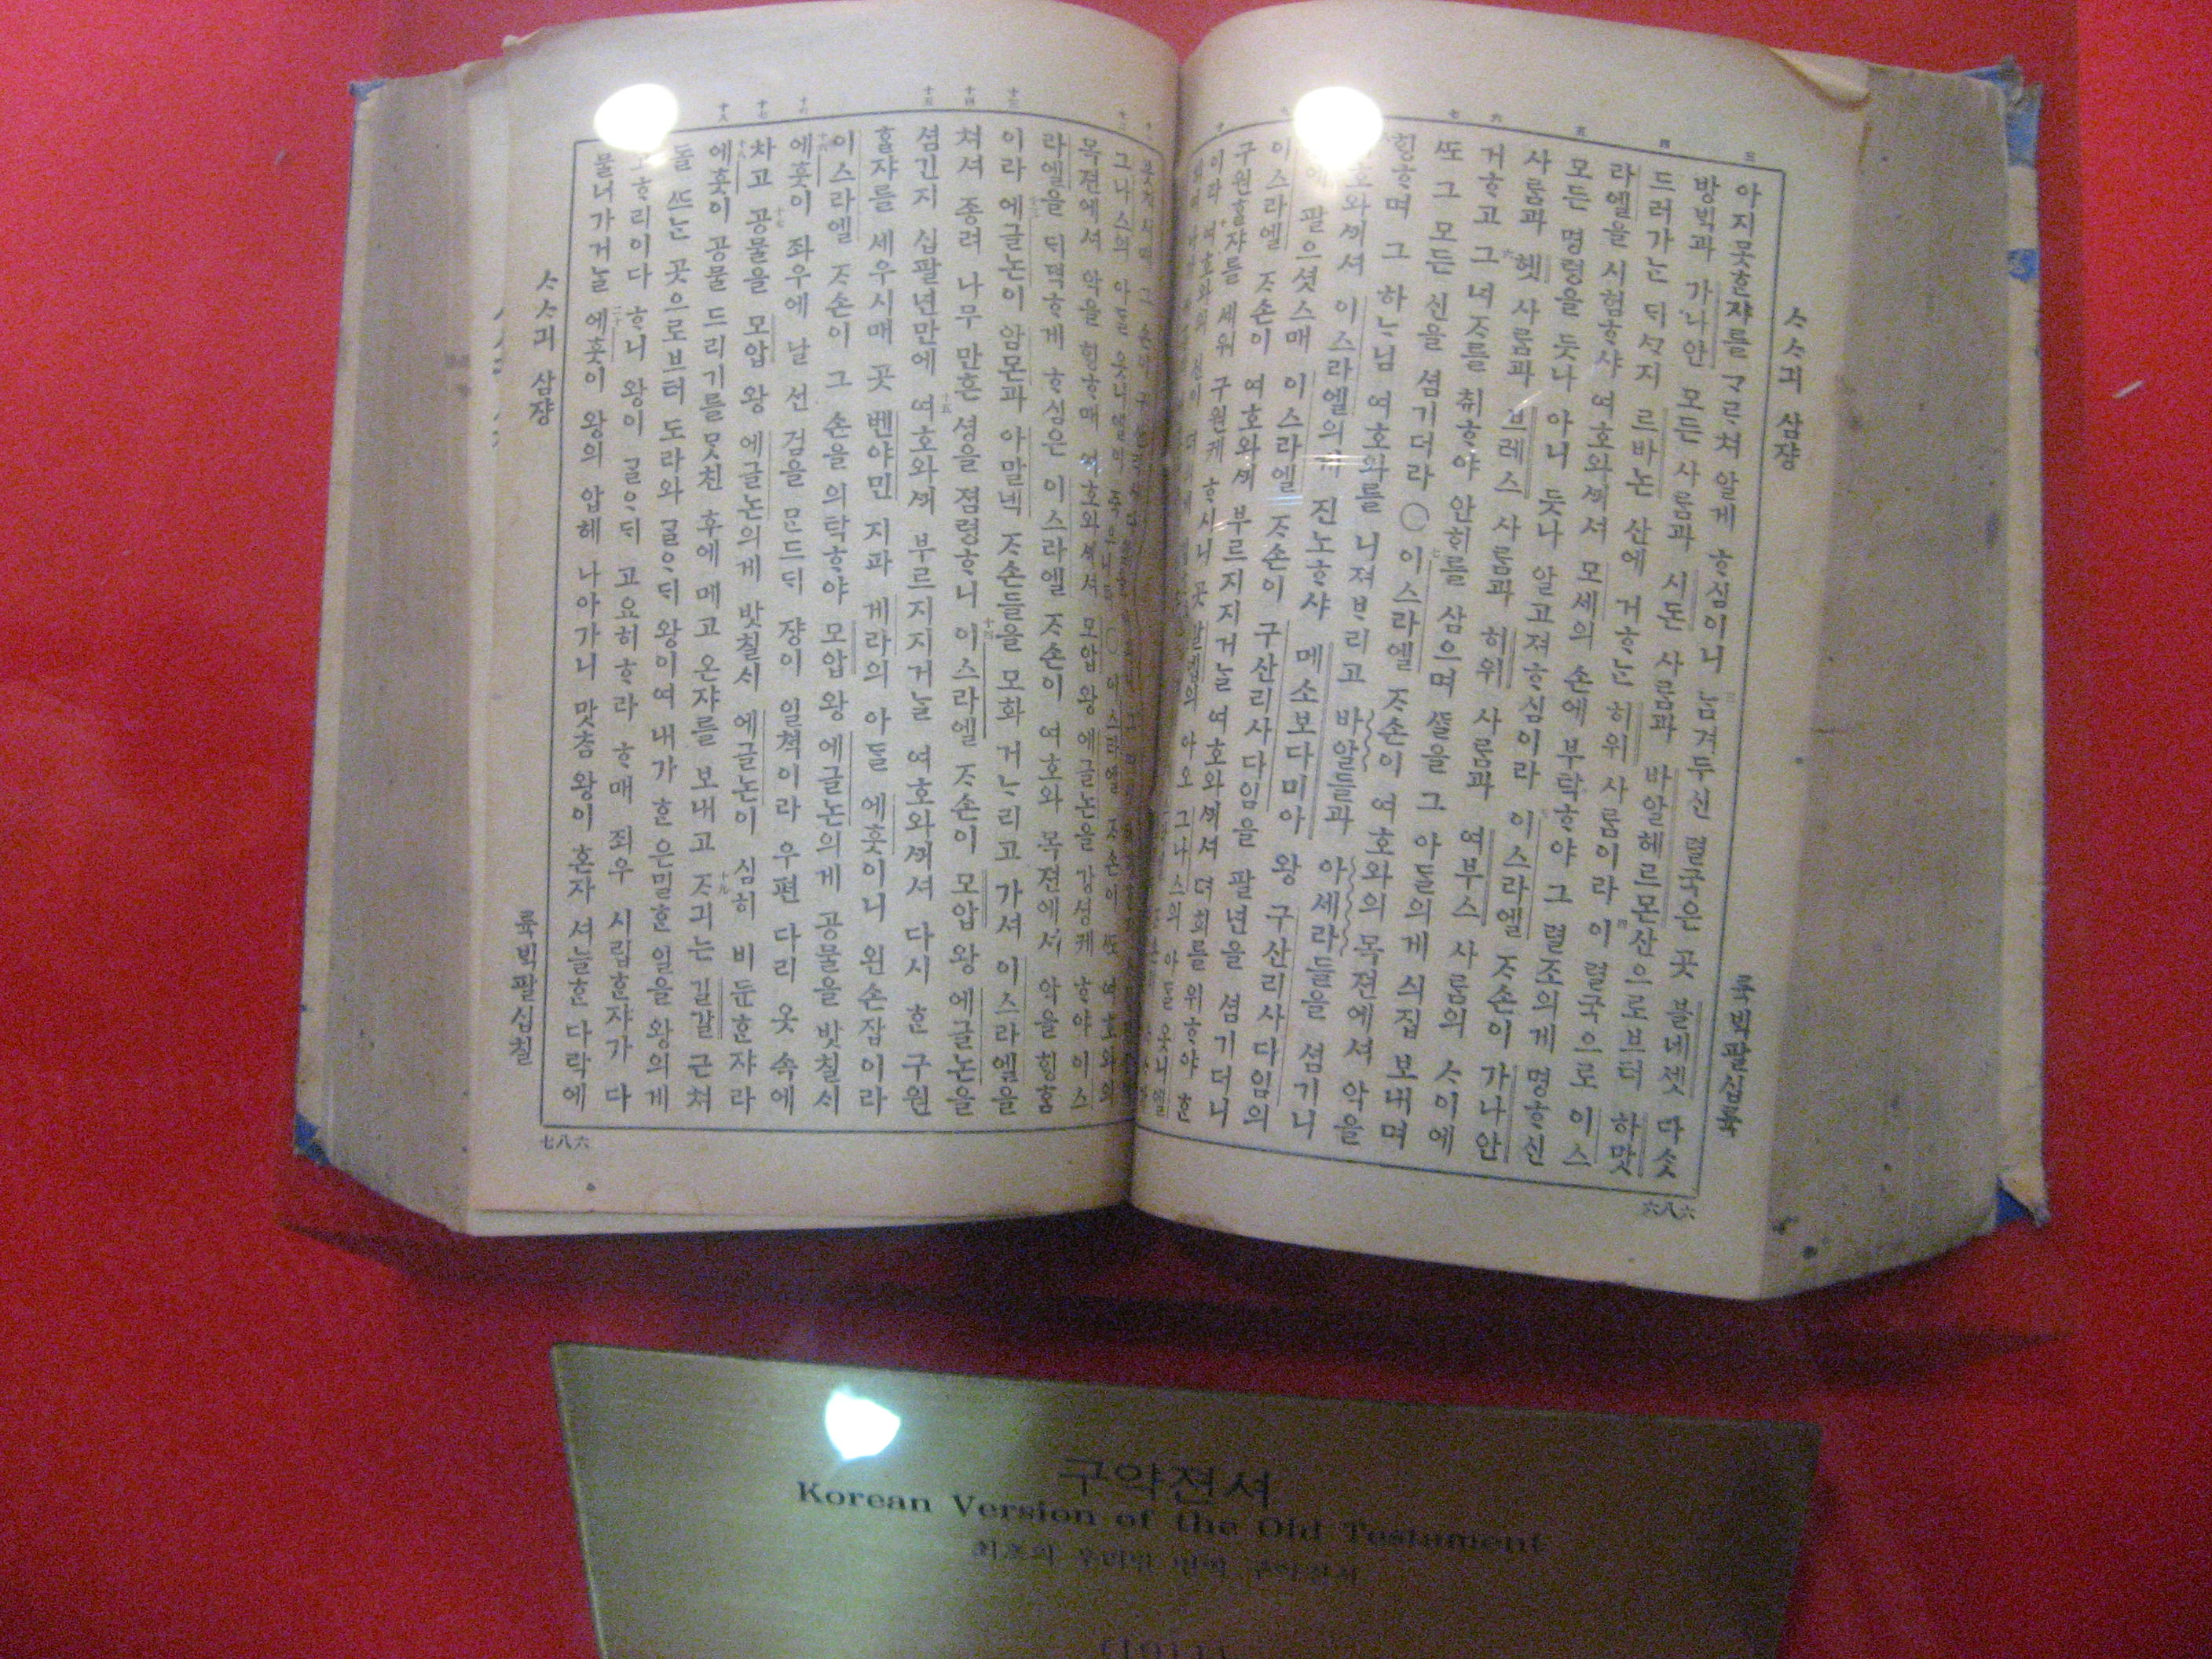 三 四 五 六 七
ᄉᆞᄉᆞ긔 삼쟝 륙ᄇᆡᆨ팔십륙
아지못ᄒᆞᆫ쟈를 ᄀᆞᄅᆞ쳐 알게 ᄒᆞ심이니 ᄂᆞᆷ겨두신 렬국은 곳 블네셋 다ᄉᆞᆺ
방ᄇᆡᆨ과 가나안 모든 사ᄅᆞᆷ과 시돈 사ᄅᆞᆷ과 바알헤르몬산으로브터 하맛
드러가ᄂᆞᆫ ᄃᆡᄭᆞ지 르바논 산에 거ᄒᆞᄂᆞᆫ 히위 사ᄅᆞᆷ이라 이 렬국으로 이스
라엘을 시험ᄒᆞ샤 여호와ᄭᅴ셔 모세의 손에 부탁ᄒᆞ야 그 렬조의게 명ᄒᆞ신
모든 명령을 듯나 아니 듯나 알고져ᄒᆞ심이라 이스라엘 ᄌᆞ손이 가나안
사ᄅᆞᆷ과 헷 사ᄅᆞᆷ과 브레스 사ᄅᆞᆷ과 히위 사ᄅᆞᆷ과 여부스 사ᄅᆞᆷ의 ᄉᆞ이에
거ᄒᆞ고 그 녀ᄌᆞ를 취ᄒᆞ야 안ᄒᆡ를 삼으며 ᄯᆞᆯ을 그 아ᄃᆞᆯ의게 싀집 보내며
ᄯᅩ 그 모든 신을 셤기더라 〇 이스라엘 ᄌᆞ손이 여호와의 목젼에셔 악을
ᄒᆡᆼᄒᆞ며 그 하ᄂᆞ님 여호와를 니져ᄇᆞ리고 바알들과 아세라들을 셤기니
호와ᄭᅴ셔 이스라엘의게 진노ᄒᆞ샤 메소보다미아 왕 구산리사다임의
팔으셧스매 이스라엘 ᄌᆞ손이 구산리사다임을 팔년을 셤기더니
이스라엘 ᄌᆞ손이 여호와ᄭᅴ 부르지지거ᄂᆞᆯ 여호와ᄭᅴ셔 뎌희를 위ᄒᆞ야 ᄒᆞᆫ
구원ᄒᆞᆯ쟈를 세워 구원케 ᄒᆞ시니 곳 갈렙의 아오 그나스의 아ᄃᆞᆯ 옷니엘
이라 여호와의 신이
六八六
十三 十四 十五 十六 十七 十八
그나스의 아ᄃᆞᆯ 옷니엘이 죽으니라 〇 이스라엘 ᄌᆞ손이 ᄯᅩ 여호와의
목젼에셔 악을 ᄒᆡᆼᄒᆞ매 여호와ᄭᅴ셔 모압 왕 에글논을 강셩케 ᄒᆞ야 이스
라엘을 ᄃᆡ뎍ᄒᆞ게 ᄒᆞ심은 이스라엘 ᄌᆞ손이 여호와 목젼에셔 악을 ᄒᆡᆼᄒᆞᆷ
이라 에글논이 암몬과 아말넥 ᄌᆞ손들을 모화 거ᄂᆞ리고 가셔 이스라엘을
쳐셔 종려 나무 만흔 셩을 졈령ᄒᆞ니 이스라엘 ᄌᆞ손이 모압 왕 에글논을
셤긴지 십팔년만에 여호와ᄭᅴ 부르지지거ᄂᆞᆯ 여호와ᄭᅴ셔 다시 ᄒᆞᆫ 구원
ᄒᆞᆯ쟈를 세우시매 곳 벤야민 지파 게라의 아ᄃᆞᆯ 에훗이니 왼손잡이라
이스라엘 ᄌᆞ손이 그 손을 의탁ᄒᆞ야 모압 왕 에글논의게 공물을 밧칠ᄉᆡ
에훗이 좌우에 날 선 검을 ᄆᆞᆫᄃᆞᄃᆡ 쟝이 일쳑이라 우편 다리 옷 속에
차고 공물을 모압 왕 에글논의게 밧칠ᄉᆡ 에글논이 심히 비둔ᄒᆞᆫ쟈라
에훗이 공물 드리기를 ᄆᆞᆺ친 후에 메고 온쟈를 보내고 ᄌᆞ긔는 길갈 근쳐
돌 ᄯᅳᄂᆞᆫ 곳으로브터 도라와 ᄀᆞᆯᄋᆞᄃᆡ 왕이여 내가 ᄒᆞᆫ 은밀ᄒᆞᆫ 일을 왕의게
고ᄒᆞ리이다 ᄒᆞ니 왕이 ᄀᆞᆯᄋᆞᄃᆡ 고요히ᄒᆞ라 ᄒᆞ매 좌우 시립ᄒᆞᆫ쟈가 다
물너가거ᄂᆞᆯ 에훗이 왕의 압헤 나아가니 맛ᄎᆞᆷ 왕이 혼자 셔늘ᄒᆞᆫ 다락에
ᄉᆞᄉᆞ긔 삼쟝 륙ᄇᆡᆨ팔십칠
七八六
구약젼셔
Korean Version of the Old Testament
최초의 우리말 번역 구약전서